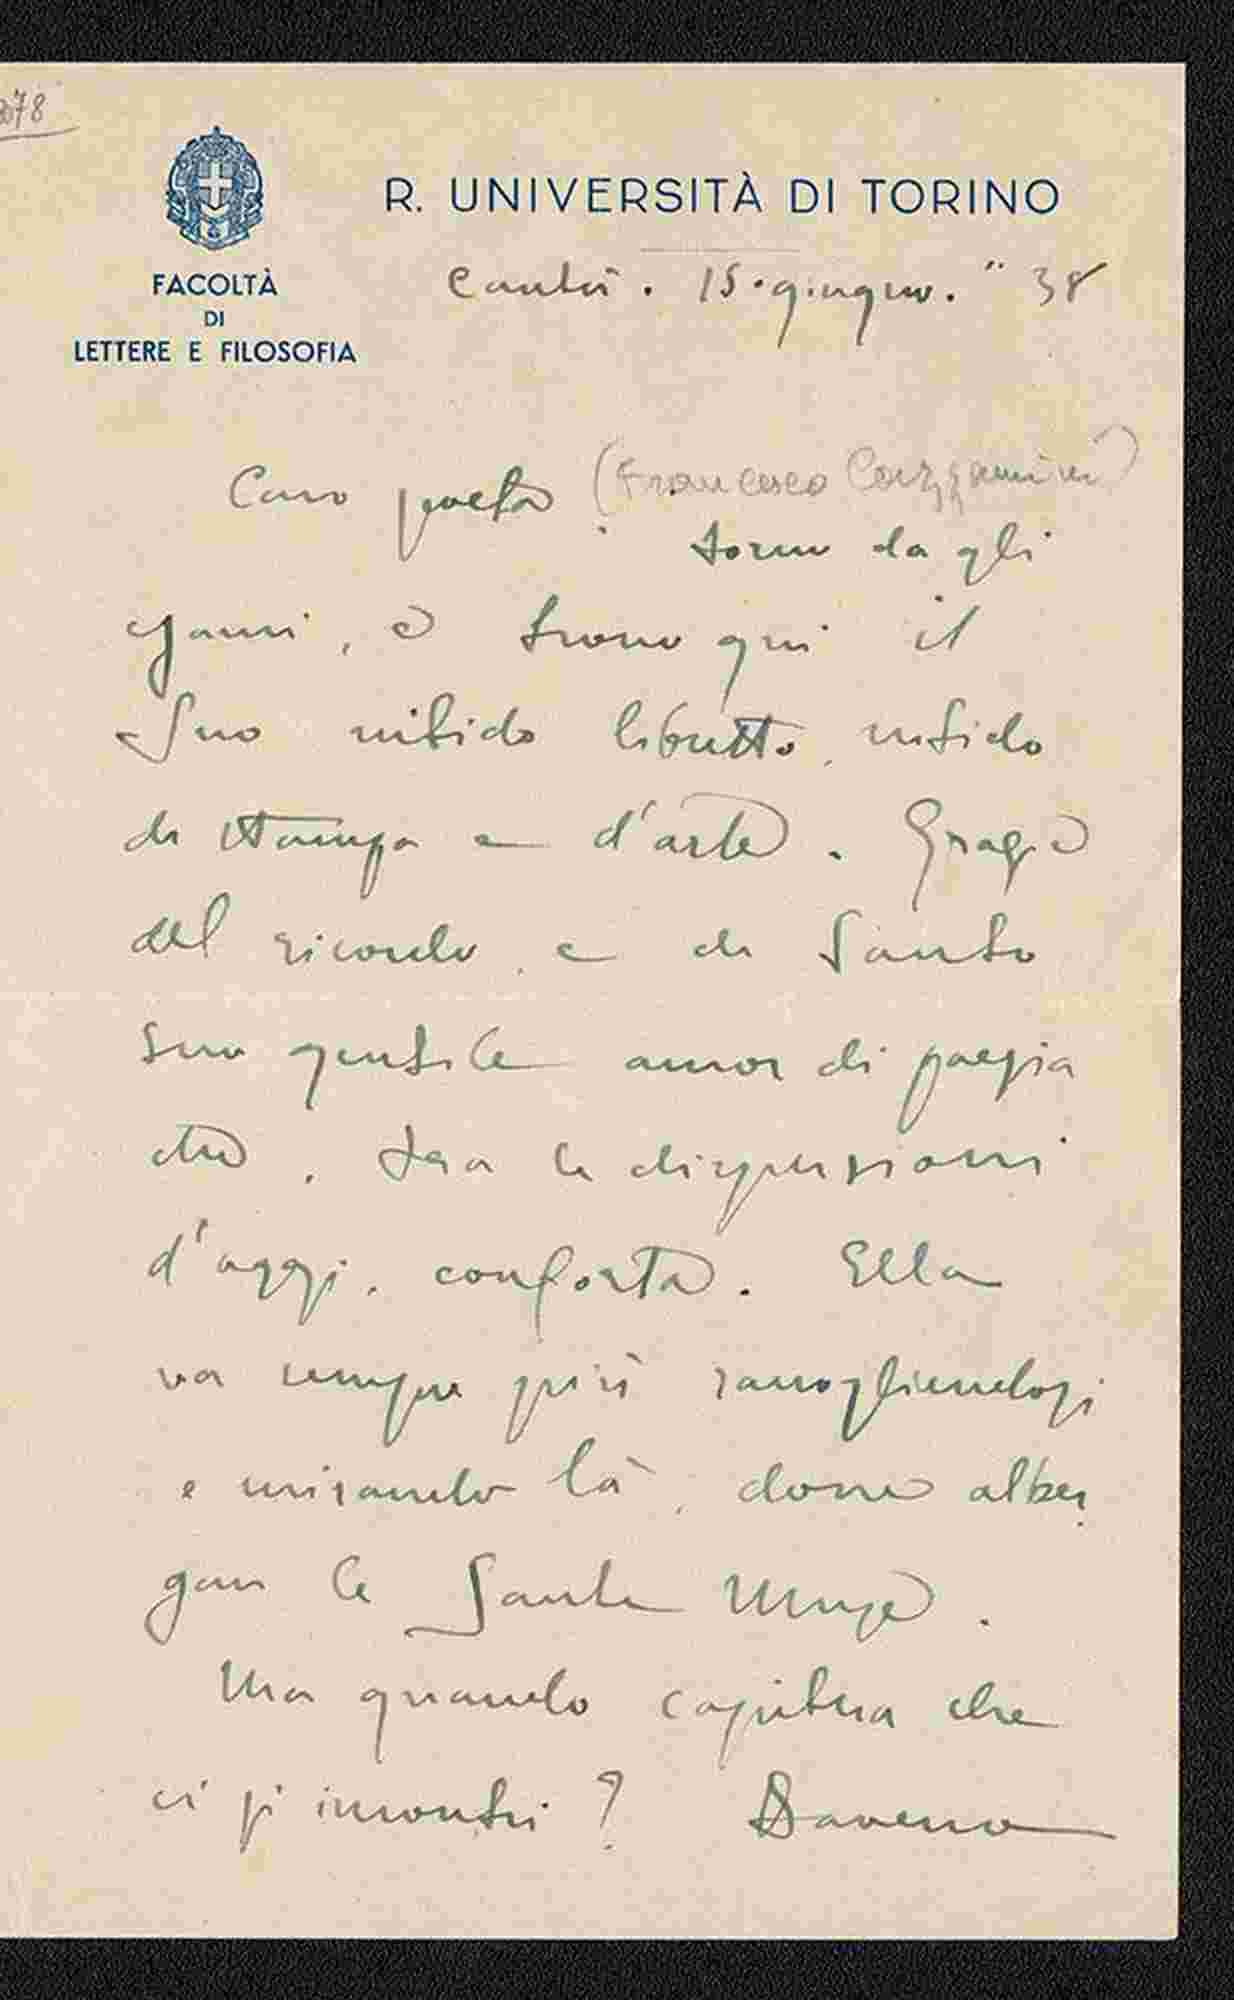 078
R. UNIVERSITÀ DI TORINO
FACOLTÀ
DI
LETTERE E FILOSOFIA
Cantù. 15. giugno. " 38
Caro poeta (Francesco
torno da gli
esami, e trovo qui il
Suo nitido libretto, nitido
di stampa e d'arte. Grazie
del ricordo, e di tanto
suo gentile amor di poesia
che, tra le dispersioni
d'oggi, conforta. Ella
va sempre più raccogliendosi
e mirando là, dove alber
gan le Sante Muse.
Ma quando capiterà che
ci si incontri? Davvero